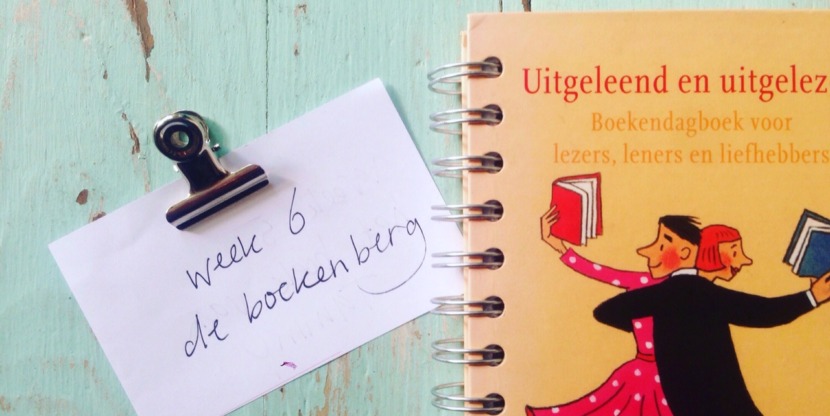 week 6
de boekenberg
Uitgeleend en uitgelez
Boekendagboek voor
lezers, leners en liefhebbers